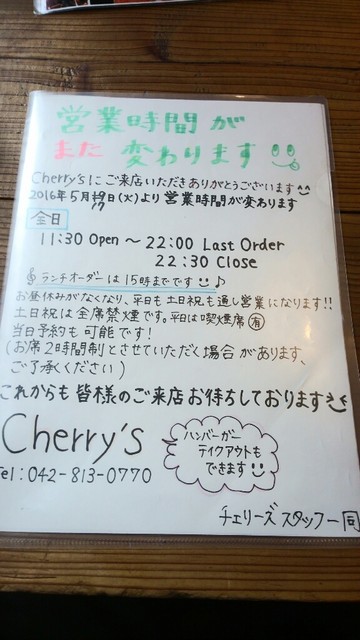 営業時間が
また変わります
Cherry'sにご来店いただきありがとうございます
2016年5月17日(火)より営業時間が変わります
全日
11:30 Open ～ 22:00 Last Order
22:30 Close
ランチオーダーは15時までです♪
お昼休みがなくなり、平日も土日祝も通し営業になります!!
土日祝は全席禁煙です。平日は喫煙席有
当日予約も可能です!
(お席2時間制とさせていただく場合があります、
ご了承ください)
これからも皆様のご来店お待ちしております
Cherry's
Tel:042-813-0770
ハンバーガー
テイクアウトも
できます
チェリーズスタッフ一同